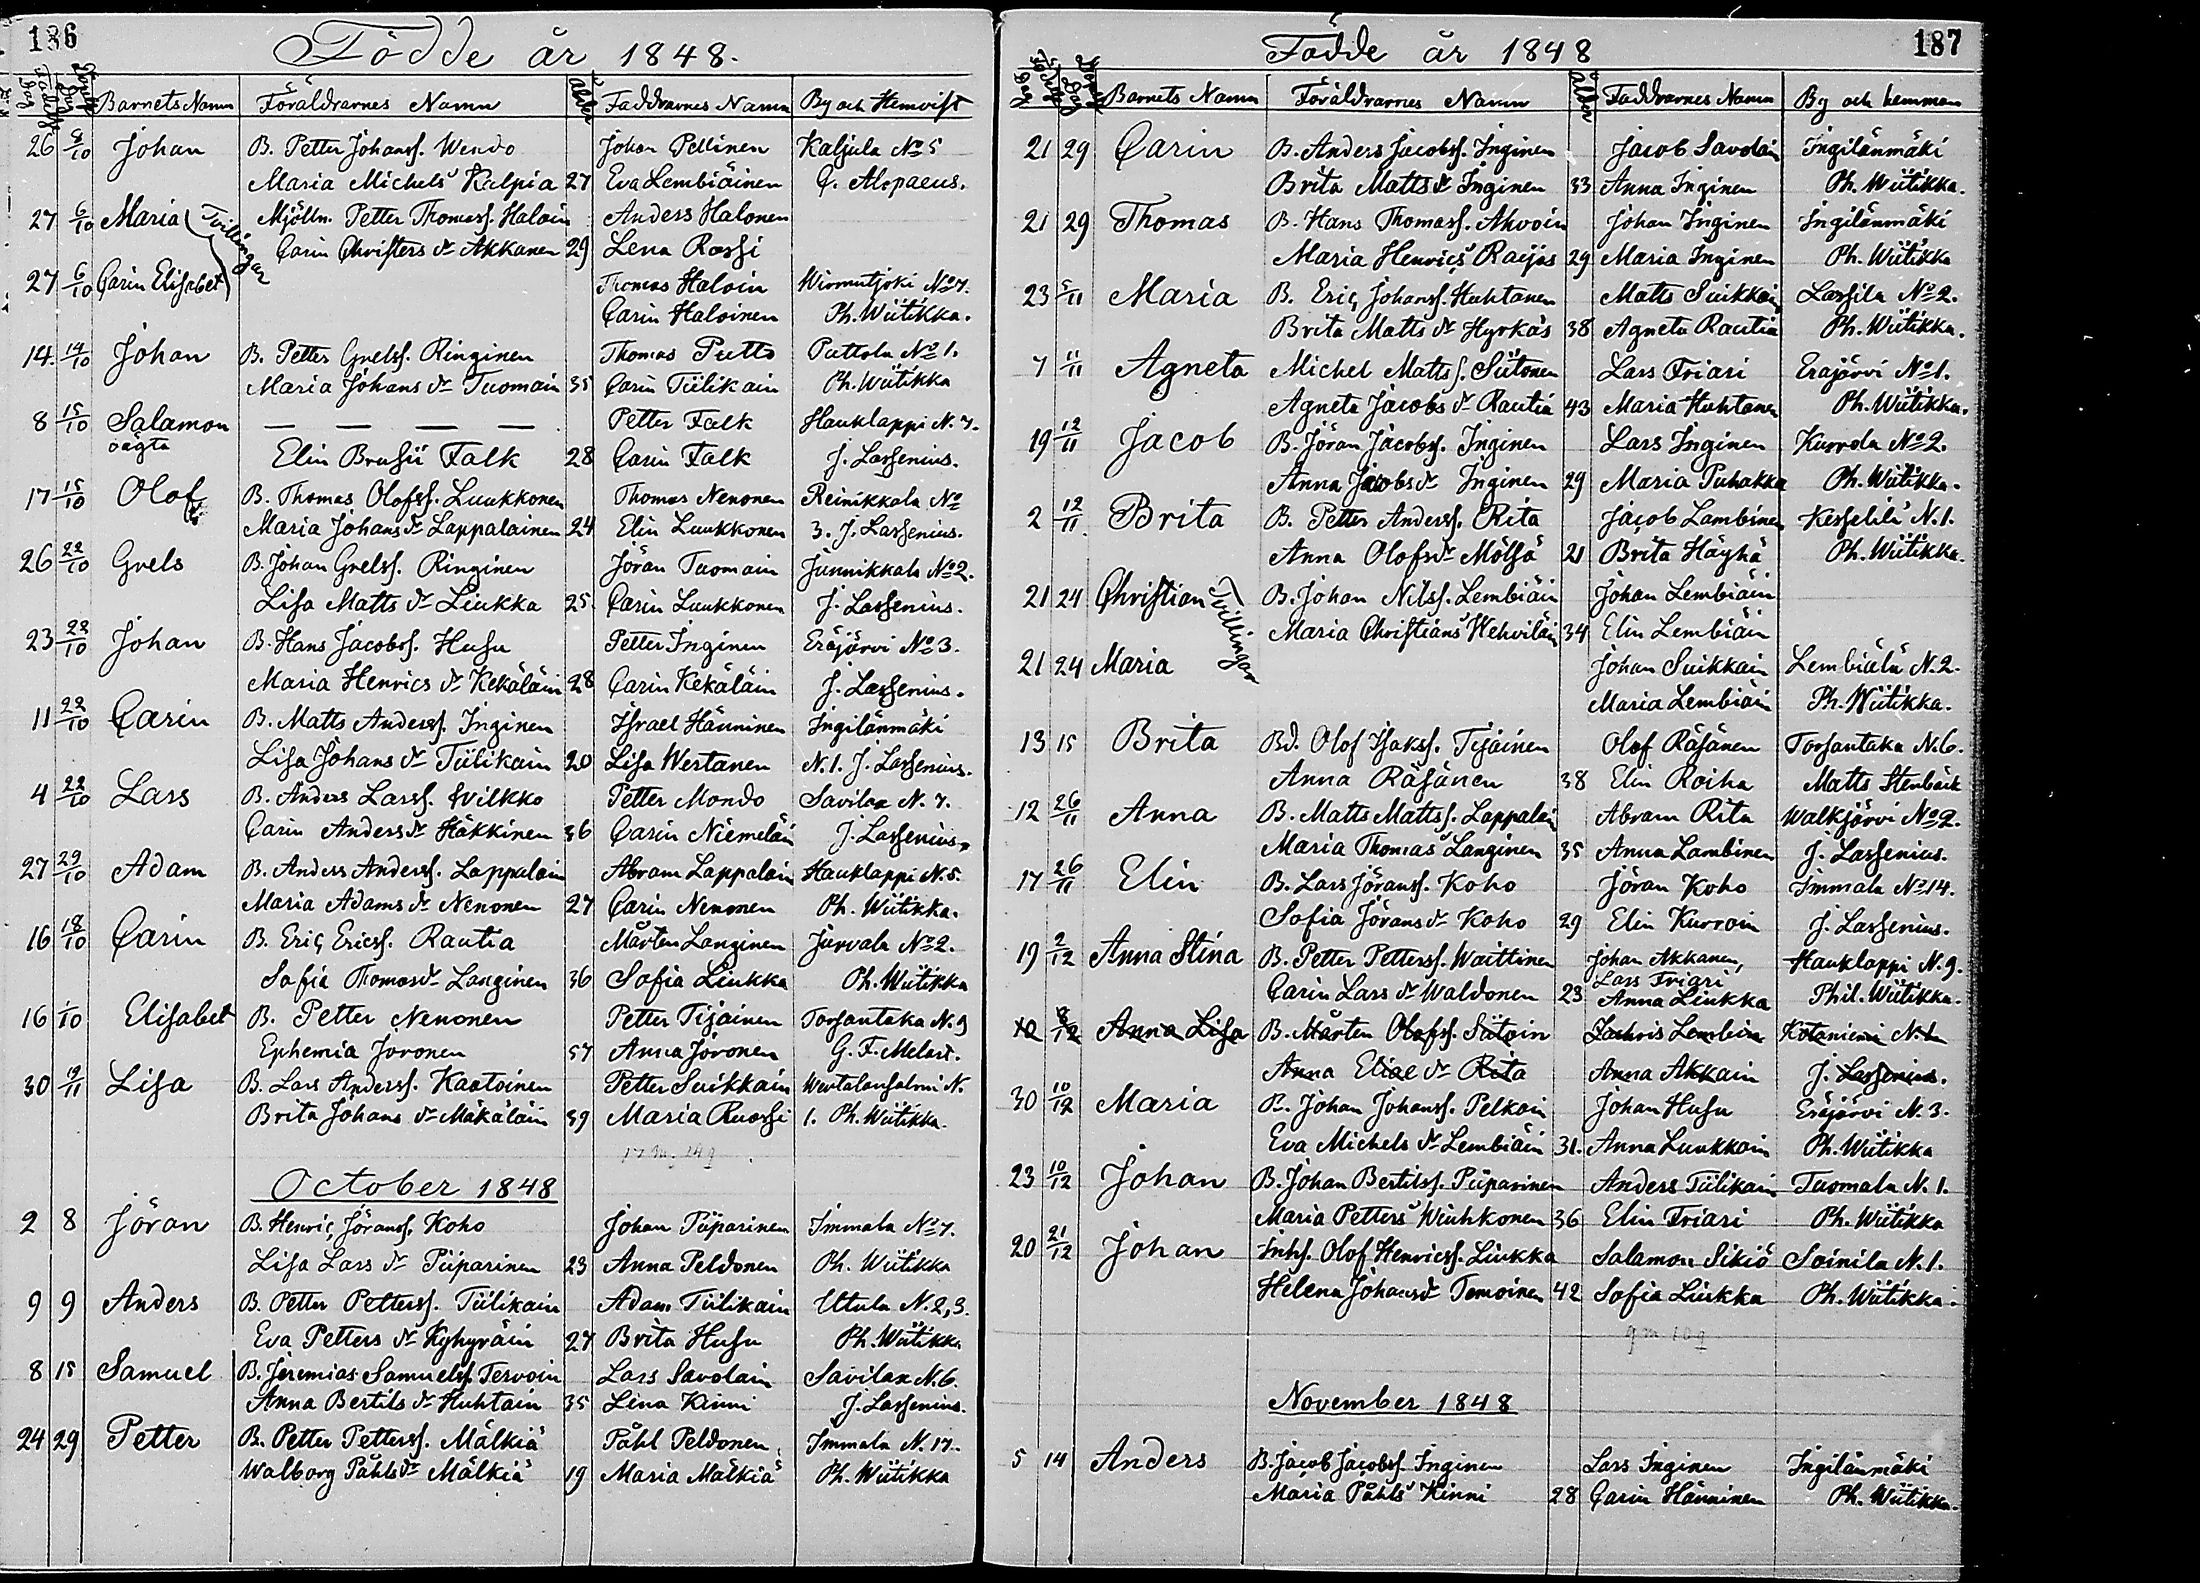 186
Födde år 1848.
Födde Dag
Döpte Dag
Barnets Namn
Föräldrarnes Namn
Ålder
Faddrarnes Namn
By och Hemvist
26 8/10 Johan B. Petter Johanss. Wendo Johan Pellinen Kaljula No 5
Maria Michels Kulpia 27 Eva Lembiäinen C. Alopaeus.
27 6/10 Maria (Tvillingar) Mjölln. Petter Thomass. Haloin Anders Halonen
Carin Christers dr Akkanen 29 Lena Rossi
27 6/10 Carin Elisabet Thomas Haloin Wirmutjoki No 7.
Carin Haloinen Ph. Wiitikka.
14. 14/10 Johan B. Petter Grelss. Ringinen Thomas Putto Puttola No 1.
Maria Johans dr Tuomain 35 Carin Tiilikain Ph. Wiitikka
8 15/10 Salamon — — — — Petter Falk Hauklappi N. 7.
oägta Elin Brusii Falk 28 Carin Falk J. Lassenius.
17 15/10 Olof B. Thomas Olofss. Luukkonen Thomas Nenonen Reinikkala No
Maria Johans dr Lappalainen 24 Elin Luukkonen 3. J. Lassenius.
26 22/10 Grels B. Johan Grelss. Ringinen Jöran Tuomain Junnikkala No 2.
Lisa Matts dr Liukka 25. Carin Luukkonen J. Lassenius.
23 22/10 Johan B. Hans Jacobss. Husu Petter Inginen Eräjärvi No 3.
Maria Henrics dr Kekäläin 28 Carin Kekäläin J. Lassenius.
11 22/10 Carin B. Matts Anderss. Inginen Israel Hänninen Ingilänmäki
Lisa Johans dr Tiilikain 20 Lisa Wertanen N. 1. J. Lassenius.
4 22/10 Lars B. Anders Larss. Wilkko Petter Mondo Savilax N. 7.
Carin Anders dr Häkkinen 36 Carin Niemeläin J. Lassenius.
27 29/10 Adam B. Anders Anderss. Lappalain Abram Lappalain Hauklappi N. 5.
Maria Adams dr Nenonen 27 Carin Nenonen Ph. Wiitikka.
16 18/10 Carin B. Eric Ericss. Rautia Mårten Langinen Jurvala No 2.
Sofia Thomas dr Langinen 36 Sofia Liukka Ph. Wiitikka
16 1/10 Elisabet B. Petter Nenonen Petter Tijäinen Torsantaka N. 9
Ephemia Joronen 37 Anna Joronen G. F. Melart.
30 19/11 Lisa B. Lars Anderss. Kaatoinen Petter Suikkain Wentelansalmi N.
Brita Johans dr Mäkäläin 39 Maria Ruossi 1. Ph. Wiitikka.
October 1848
2 8 Jöran B. Henric Jöranss. Koho Johan Piiparinen Immala No 7.
Lisa Lars dr Piiparinen 23 Anna Peldonen Ph. Wiitikka
9 9 Anders B. Petter Petterss. Tiilikain Adam Tiilikain Utula N. 2, 3.
Eva Petters dr Kyhyräin 27 Brita Husu Ph. Wiitikka
8 15 Samuel B. Jeremias Samuelss. Tervoin Lars Savolain Savilax N. 6.
Anna Bertils dr Huhtain 35 Lena Kinni J. Lassenius.
24 29 Petter B. Petter Petterss. Mälkiä Påhl Peldonen Immala N. 17.
Walborg Påhls dr Mälkiä 19 Maria Mälkiä Ph. Wiitikka
187
Födde år 1848
Födde Dag
Döpte Dag
Barnets Namn
Föräldrarnes Namn
Ålder
Faddrarnes Namn
By och hemman
21 29 Carin B. Anders Jacobss. Inginen Jacob Savolain Ingilänmäki
Brita Matts dr Inginen 33 Anna Inginen Ph. Wiitikka.
21 29 Thomas B. Hans Thomass. Ahvoin Johan Inginen Ingilänmäki
Maria Henrics Raijas 29 Maria Inginen Ph. Wiitikka
23 5/11 Maria B. Eric Johanss. Huhtanen Matts Suikkain Lassila No 2.
Brita Matts dr Hyrkäs 38 Agneta Rautia Ph. Wiitikka.
7 11/11 Agneta Michel Mattss. Siitonen Lars Friari Eräjärvi No 1.
Agneta Jacobs dr Rautia 43 Maria Huhtanen Ph. Wiitikka.
19 12/11 Jacob B. Jöran Jacobss. Inginen Lars Inginen Kurrola No 2.
Anna Jacobs dr Inginen 29 Maria Puhakka Ph. Wiitikka.
2 12/11 Brita B. Petter Anderss. Rita Jacob Lambinen Kesselilä N. 1.
Anna Olofs dr Mölsä 21 Brita Häyhä Ph. Wiitikka.
21 24 Christian Tvillingar B. Johan Nilss. Lembiäin Johan Lembiäin
Maria Christians Hehviläin 34 Elin Lembiäin
21 24 Maria Johan Suikkain Lembiälä N. 2.
Maria Lembiäin Ph. Wiitikka.
13 15 Brita Bd. Olof Isakss. Tijäinen Olof Räsänen Torsantaka N. 6.
Anna Räsänen 38 Elin Roiha Matts Stenbäck
12 26/11 Anna B. Matts Mattss. Lappalain Abram Rita Walkjärvi No 2.
Maria Thomas Langinen 35 Anna Lambinen J. Lassenius.
17 26/11 Elin B. Lars Jöranss. Koho Jöran Koho Immala No 14.
Sofia Jörans dr Koho 29 Elin Kurroin J. Lassenius.
19 2/12 Anna Stina B. Petter Petterss. Waittinen Johan Akkanen, Hauklappi N. 9.
Lars Friari
Carin Lars dr Waldonen 23 Anna Liukka Phil. Wiitikka.
10 8/12 Anna Lisa B. Mårten Olofss. Siitoin Zachris Lembin Kotaniemi N. 1.
Anna Eliae dr Rita Anna Akkain J. Lassenius.
30 10/12 Maria B. Johan Johanss. Pelkoin Johan Husu Eräjärvi N. 3.
Eva Michels dr Lembiäin 31. Anna Luukkain Ph. Wiitikka
23 10/12 Johan B. Johan Bertilss. Piiparinen Anders Tiilikain Tuomala N. 1.
Maria Petters Wiuhkonen 36 Elin Friari Ph. Wiitikka
20 21/12 Johan Inhs. Olof Henricss. Liukka Salamon Sikiö Soinila N. 1.
Helena Johans dr Temoinen 42 Sofia Liukka Ph. Wiitikka.
November 1848
5 14 Anders B. Jacob Jacobss. Inginen Lars Inginen Ingilänmäki
Maria Påhls Kinni 28 Carin Hänninen Ph. Wiitikka.